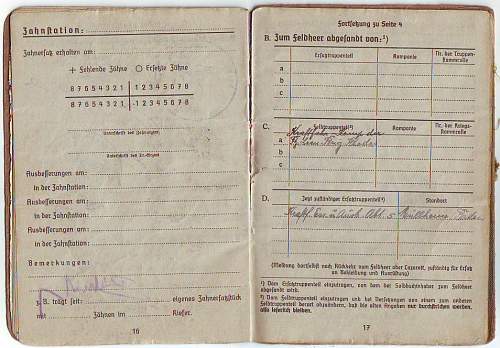 Zahnstation:
Zahnersatz erhalten am:
+ Fehlende Zähne ○ Ersetzte Zähne
8 7 6 5 4 3 2 1 | 1 2 3 4 5 6 7 8
8 7 6 5 4 3 2 1 | 1 2 3 4 5 6 7 8
Ausbesserungen am:
in der Zahnstation:
Ausbesserungen am:
in der Zahnstation:
Ausbesserungen am:
in der Zahnstation:
Bemerkungen:
z. B. trägt seit: eigenes Zahnersatzstück
mit Zähnen im Kiefer.
16
Fortsetzung zu Seite 4
B. Zum Feldheer abgesandt von:¹)
Ersatztruppenteil Kompanie Nr. der Truppen-
stammrolle
a
b
c
C. Feldtruppenteil²) Kompanie Nr. der Kriegs-
stammrolle
a
b
c
D. Jetzt zuständiger Ersatztruppenteil³) Standort
Kraftf. Ers. u. Ausb. Abt. 5
(Meldung dortselbst nach Rückkehr vom Feldheer oder Lazarett, zuständig für Ersatz
an Bekleidung und Ausrüstung)
¹) Vom Ersatztruppenteil einzutragen, von dem der Soldbuchinhaber zum Feldheer
abgesandt wird.
²) Vom Feldtruppenteil einzutragen und bei Versetzungen von einem zum anderen
Feldtruppenteil derart abzuändern, daß die alten Angaben nur durchstrichen werden,
also leserlich bleiben.
17